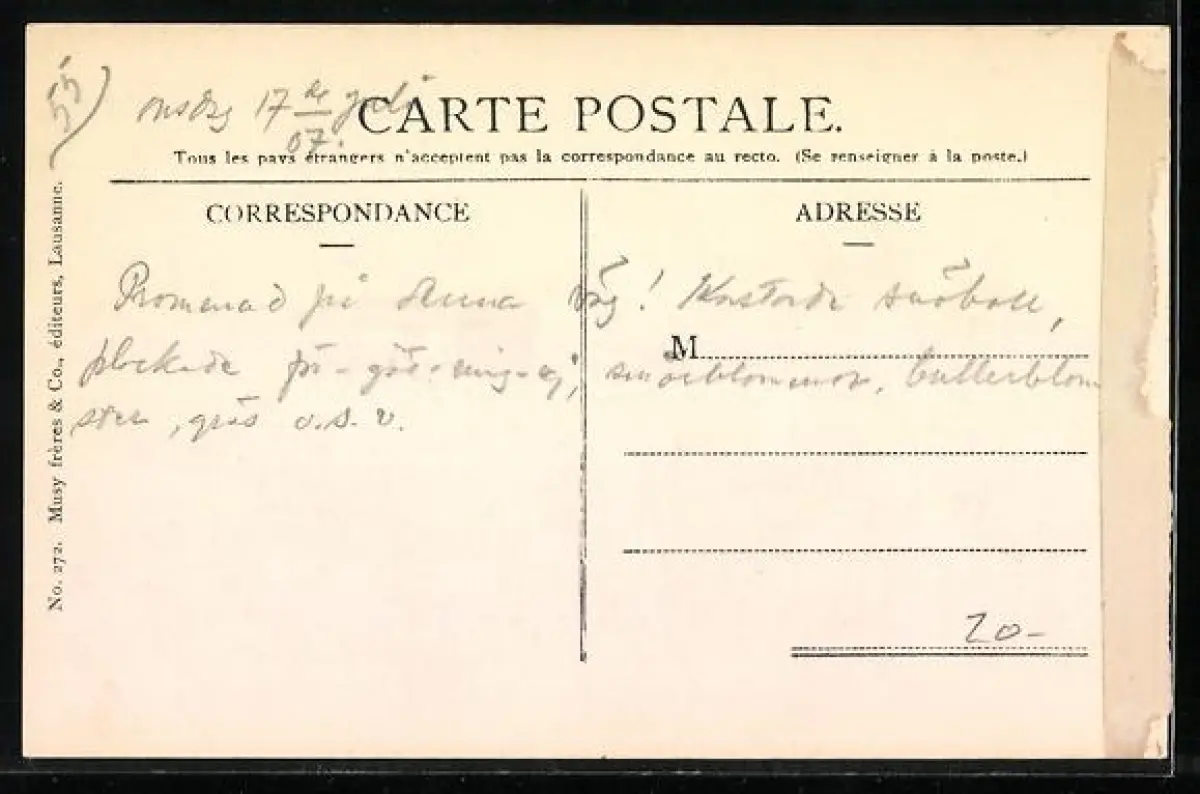 onsdag 17 de juli
07.
CARTE POSTALE.
Tous les pays étrangers n'acceptent pas la correspondance au recto. (Se renseigner à la poste.)
CORRESPONDANCE
ADRESSE
Promenad på denna väg! Kastade snöboll,
M
plockade på smörblommor, bullerblom
ster, gräs o.s.v.
20-
No. 272. Musy frères & Co., éditeurs, Lausanne.